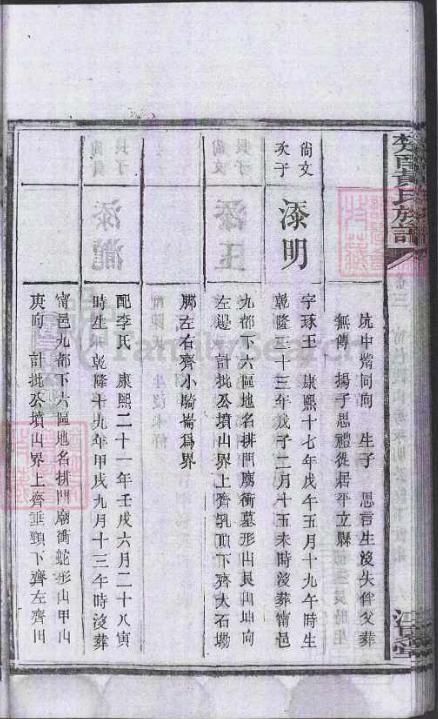 坑中觜同向 生子 思言生沒失俱父葬
無傳 揚子思禮徙居平立縣
尙文
次子
添明
字琢玉 康熙十七年戊午五月十九午時生
乾隆二十三年戊子二月十五未時沒葬甯邑
九都下六區地名排門廟衝墓形山艮山坤向
左邊 計批公墳山界上齊乳頂下齊大石塝
腳左右齊小騎崙爲界
配李氏 康熙二十一年壬戌六月二十八寅
時生 乾隆十九年甲戌九月十三午時沒葬
甯邑九都下六區地名排門廟衝蛇形山甲山
庚向 計批公墳山界上齊垂頸下齊左齊田